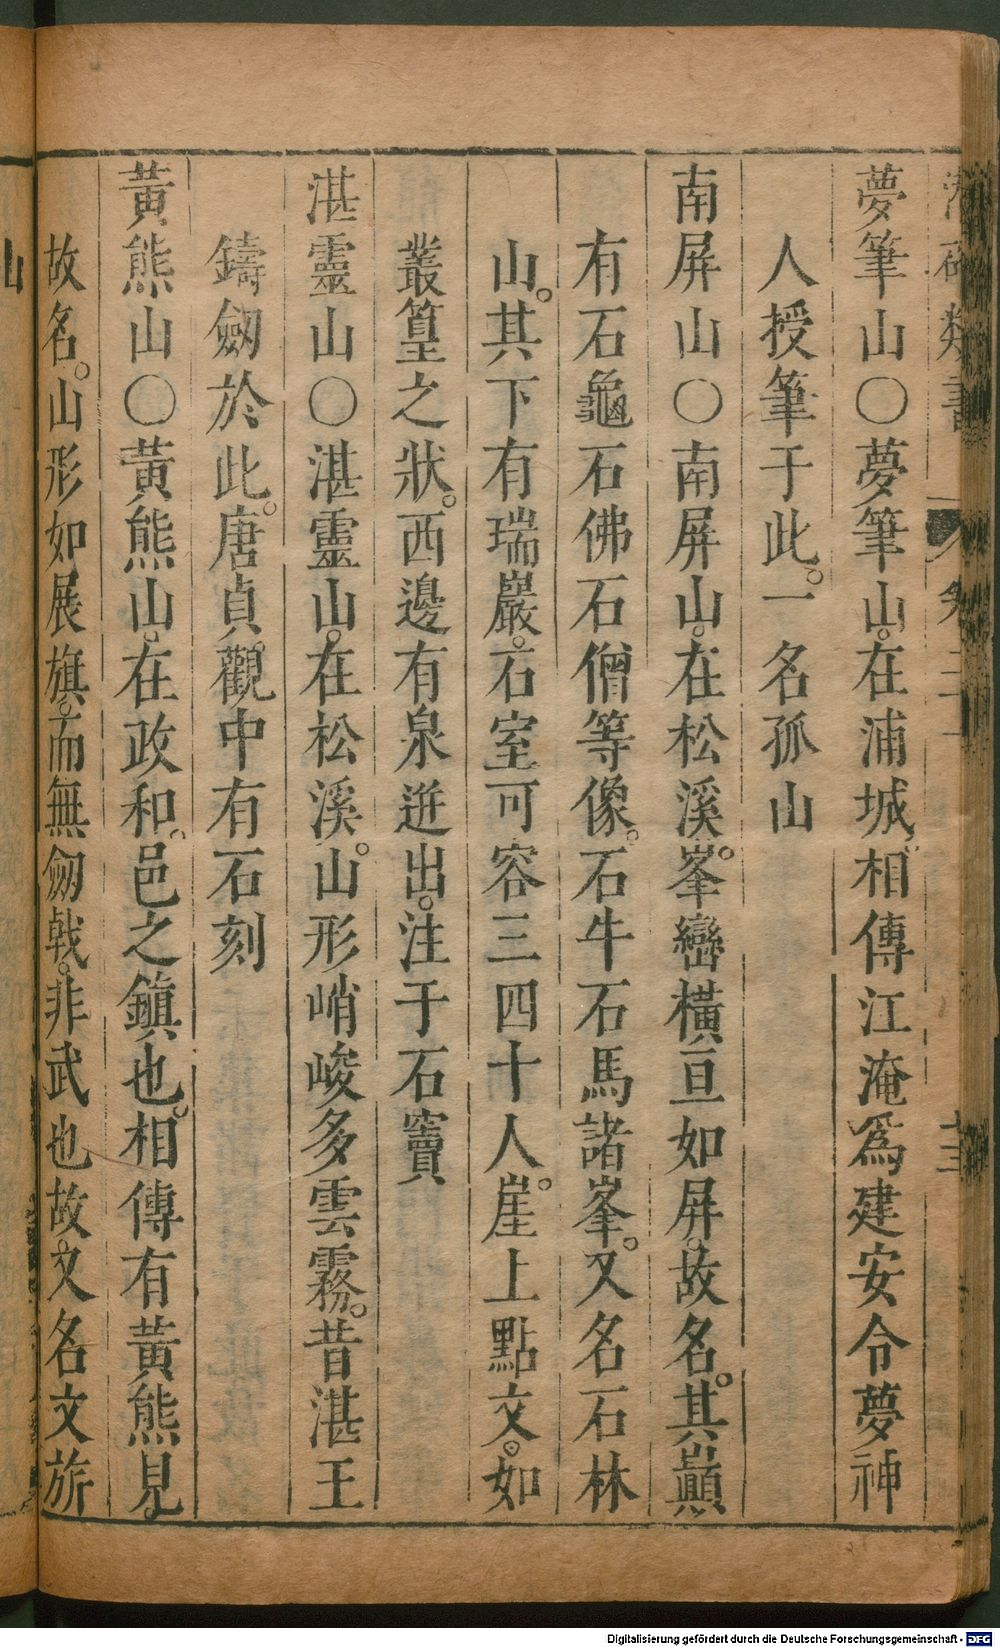 夢筆山○夢筆山。在浦城。相傳江淹爲建安令夢神
人授筆于此。一名孤山
南屏山○南屏山。在松溪。峯巒橫亘如屏。故名。其巔
有石龜石佛石僧等像。石牛石馬諸峯。又名石林
山。其下有瑞巖。石室可容三四十人。崖上點文。如
叢篁之狀。西邊有泉迸出。注于石竇
湛靈山○湛靈山。在松溪。山形峭峻多雲霧。昔湛王
鑄劒於此。唐貞觀中有石刻
黃熊山○黃熊山。在政和。邑之鎮也。相傳有黃熊見。
故名。山形如展旗。而無劒戟。非武也故。又名文旂
山
Digitalisierung gefördert durch die Deutsche Forschungsgemeinschaft - DFG